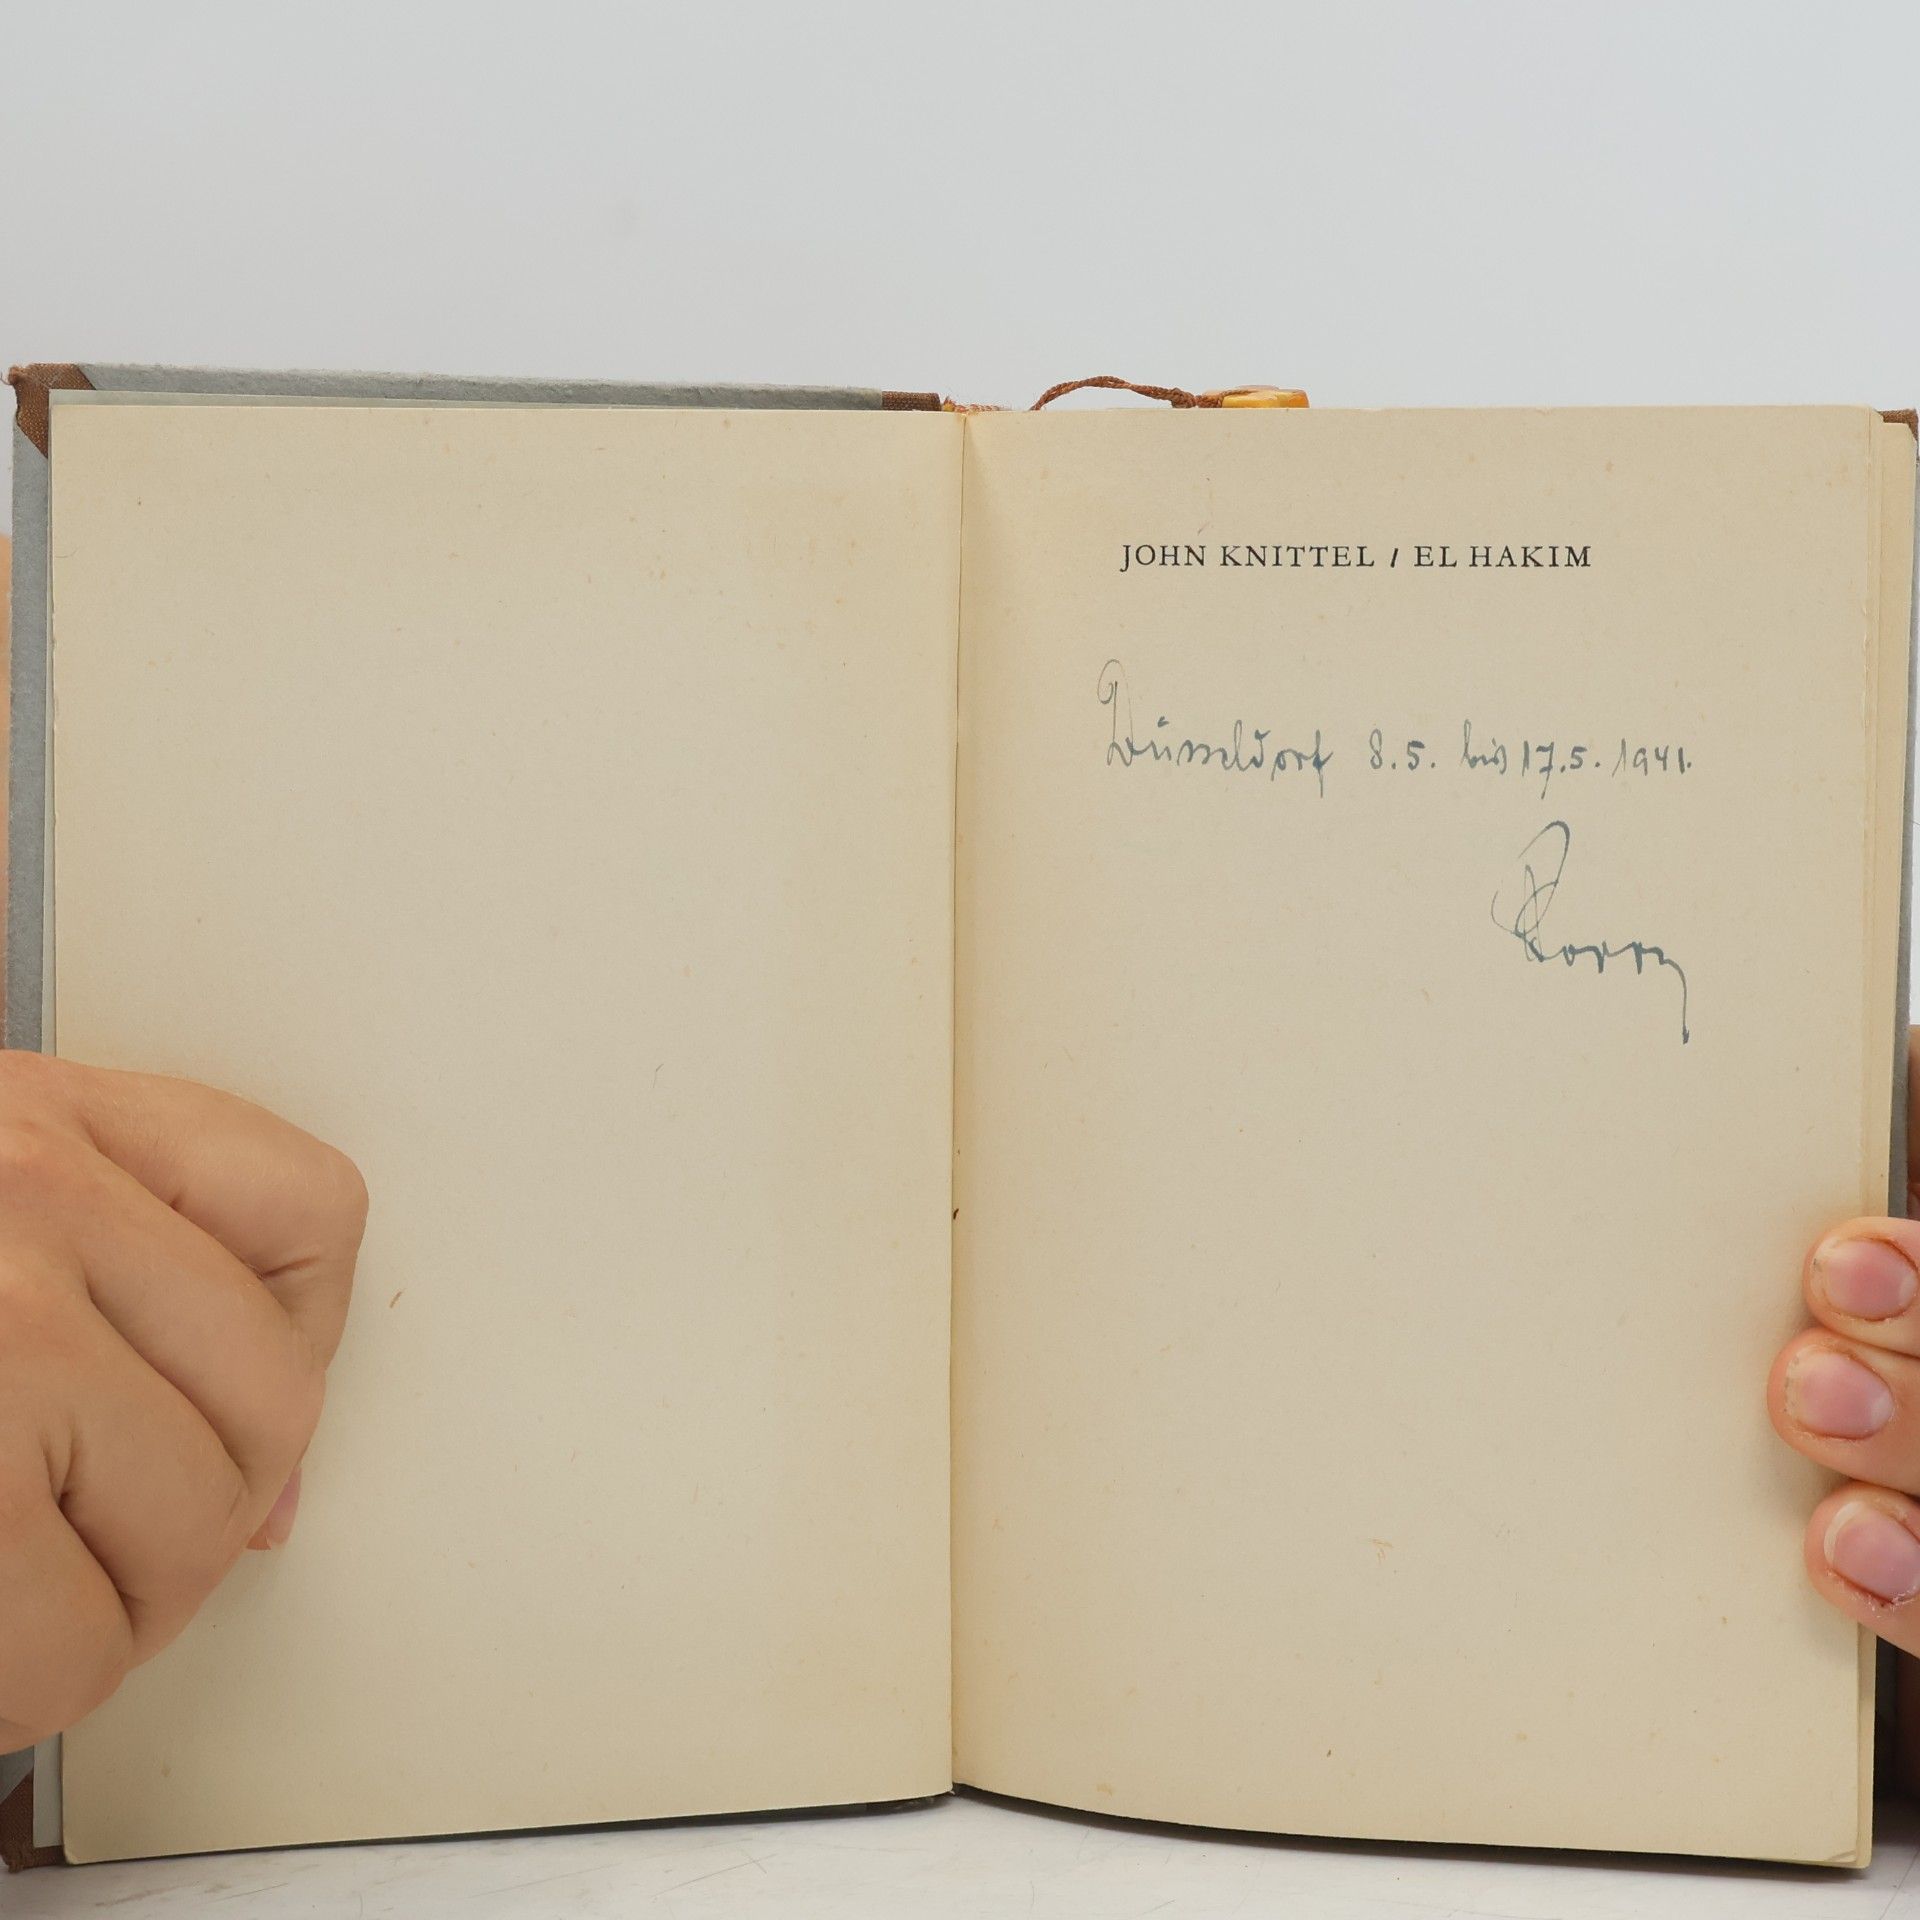 JOHN KNITTEL / EL HAKIM
Düsseldorf 8.5. bis 17.5. 1941.